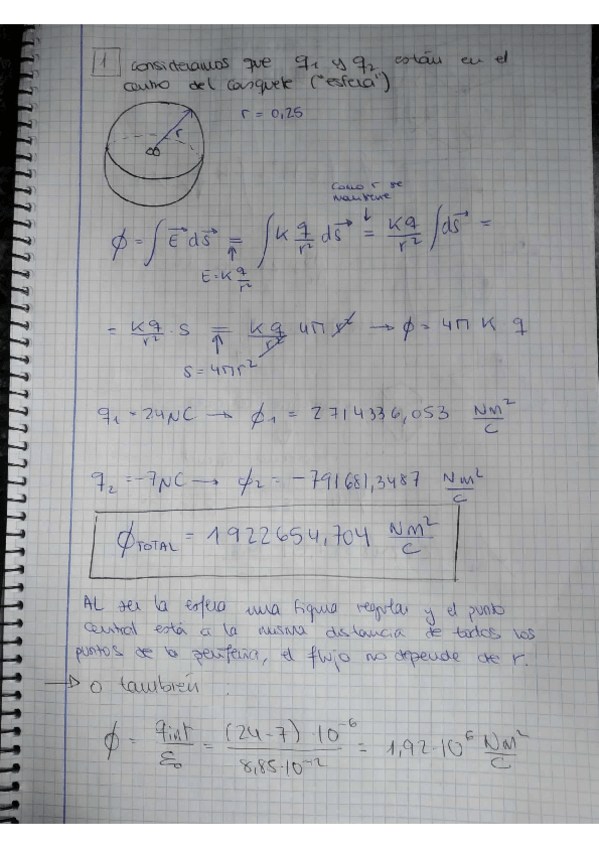 1 consideramos que q1 y q2 están en el
centro del casquete ("esfera")
r = 0,25
r
como r se
mantiene
ϕ = ∫ E⃗ dS⃗ = ∫ K q/r² dS⃗ = Kq/r² ∫ dS⃗ =
E = K q/r²
= Kq/r² · S = Kq/r² 4π r² → ϕ = 4π K q
S = 4πr²
q1 = 24μC → ϕ1 = 2714336,053 Nm²/C
q2 = -7μC → ϕ2 = -791681,3487 Nm²/C
ϕTOTAL = 1922654,704 Nm²/C
AL ser la esfera una figura regular y el punto
central está a la misma distancia de todos los
puntos de la periferia, el flujo no depende de r.
→ o también :
ϕ = qint/ε0 = (24-7)·10⁻⁶/8,85·10⁻¹² = 1,92·10⁶ Nm²/C